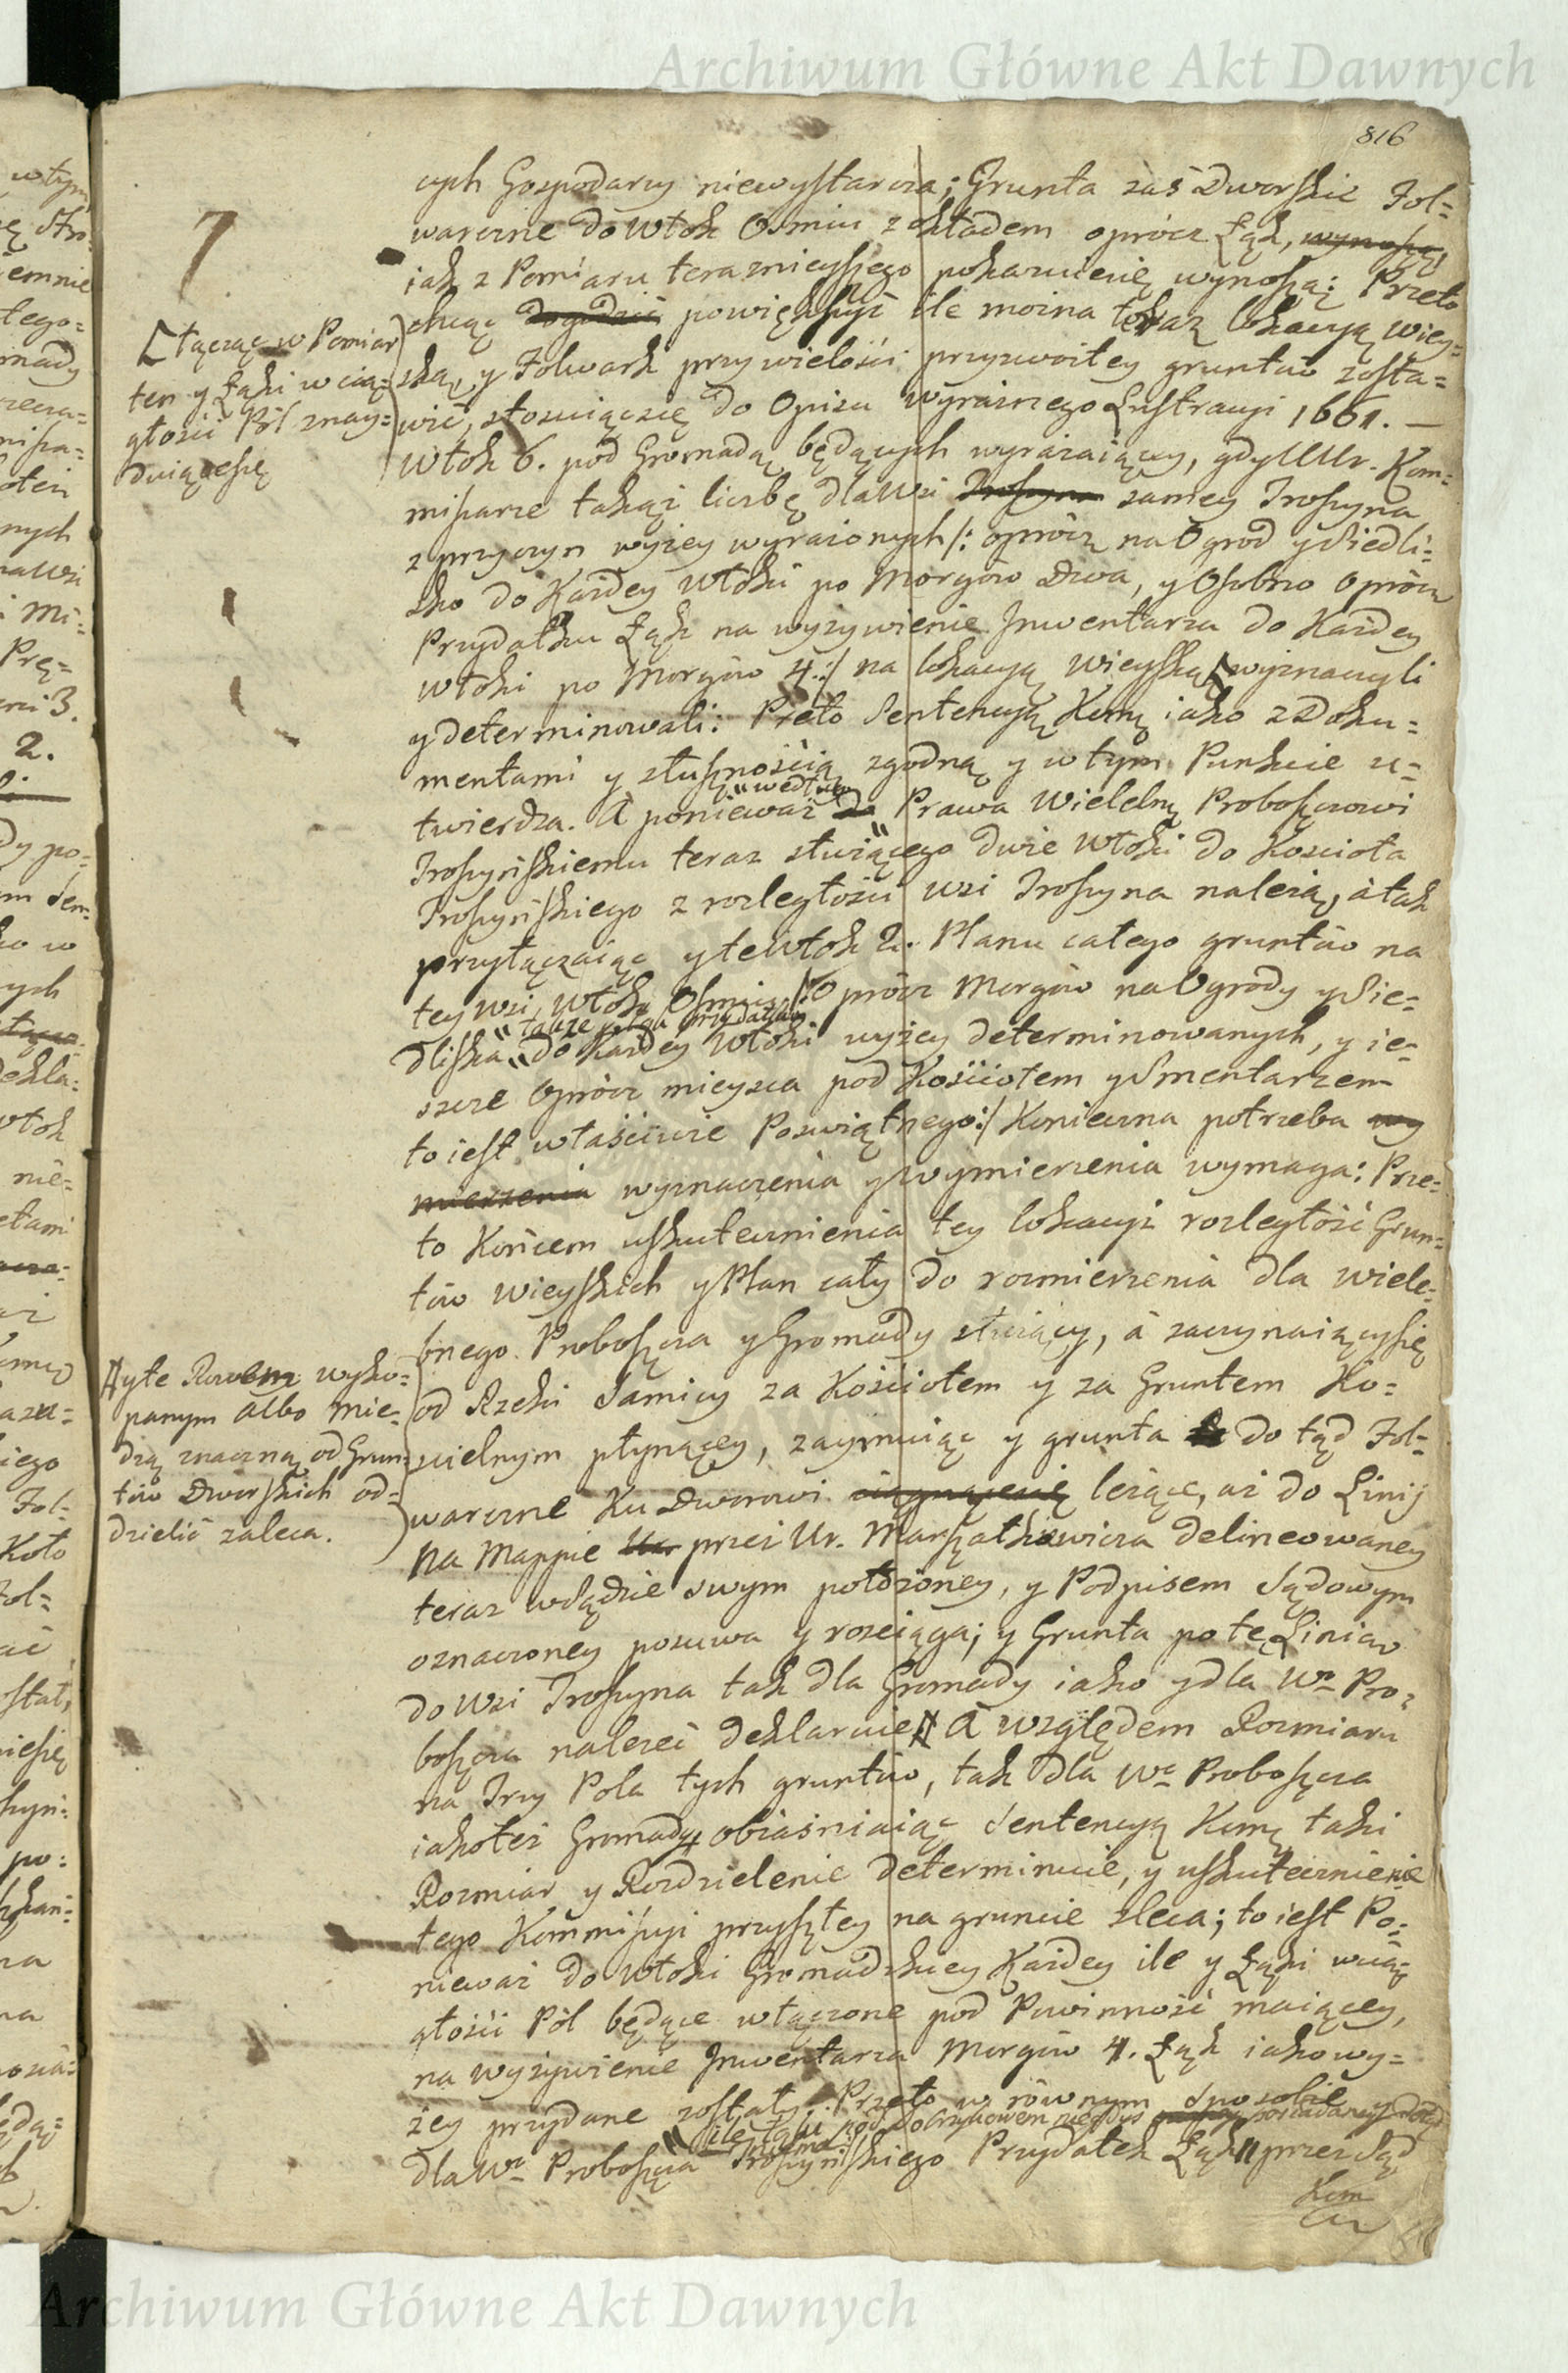 Archiwum Główne Akt Dawnych
816
7
cych Gospodarzy niewystarcza; Grunta zaś Dworskie Fol=
warczne do włok Osmiu z okładem oprócz Łąk, wynoszą,
iak z Pomiaru teraznieyszego pokazuiesię wynoszą; Przeto
chcąc dogodzić powiększyć ile można teraz lokacyą wiey=
ską, y Folwark przy wielości przyzwoitey gruntów zosta=
wić, stosuiącsię do Opisu wyraźnego Lustracyi 1661. —
włok 6. pod Gromadą będących wyrażaiący, gdy UUr. Kom=
misarze takąż liczbę dla wsi Troszyna samey Troszyna
z przyczyn wyżey wyrażonych /: oprócz na Ogród y Siedli=
sko do Każdey włoki po Morgów Dwa, y Osobno oprócz
Przydatku Łąk na wyżywienie Inwentarza do Każdey
włoki po Morgów 4 :/ na lokacyą wieyską wyznaczyli
y determinowali: Przeto Sentencyą Kmą iako z Doku=
mentami y słusznością zgodną y w tym Punkcie u=
twierdza. A ponieważ do Prawa Wielebnemu Proboszczowi
według
Troszyńskiemu teraz służącego dwie włoki do Kościoła
Troszyńskiego z rozległości wsi Troszyna należą, à tak
przyłączaiąc y te włok 2. Planu całego gruntów na
tey wsi, włok Osmiu /: Oprócz Morgów na Ogrody y Sie=
także przydatku
dliska do Każdey włoki wyżey determinowanych, y ie=
szcze Oprócz mieysca pod Kościołem y Smentarzem
to iest właściwie Poswiątnego :/ Konieczna potrzeba wy
mierzenia wyznaczenia y wymierzenia wymaga: Prze=
to Końcem uskutecznienia tey lokacyi rozległość Grun=
tów wieyskich y Plan cały do rozmierzenia dla wiele=
bnego Proboszcza y Gromady służący, à zaczynaiącysię
od Rzeki Samicy za Kościołem y za Gruntem Ko=
scielnym płynącey, zaymuiąc y grunta do tąd Fol=
warczne Ku Dworowi ciągnącesię leżące, aż do Linij
na Mappie przez Ur. Marszałkiewicza delineowaney
teraz w Sądzie swym położoney, y Podpisem Sądowym
oznaczoney posuwa y rosciąga; y Grunta po tę Linią
do wsi Troszyna tak dla Gromady iako y dla Wo Pro=
boszcza należeć deklaruie # A względem Rozmiaru
na Trzy Pola tych gruntów, tak dla Wo Proboszcza
iakoteż Gromady obiaśniaiąc Sentencyą Kmą taki
Rozmiar y Rozdzielenie determinuie, y uskutecznienie
tego Kommissyi przyszłey na gruncie zleca; to iest Po=
nieważ do włoki Gromadzkiey Każdey ile y Łąki w cią=
głości Pól będące włączone pod Powinność maiącey,
na wyżywienie Inwentarza Morgów 4. Łąk iako wy=
żey przydane zostały. Przeto w równym Sposobie
dla Wo Proboszcza Troszyńskiego Przydatek Łąk przez Sąd
Kom
[łącząc w Pomiar
ten y Łąki w cią=
głości Pól znay=
duiącesię
# y te Rowem wyko=
panym albo mie=
dzą znaczną od Grun=
tów Dworskich od=
dzielić zaleca.
Archiwum Główne Akt Dawnych